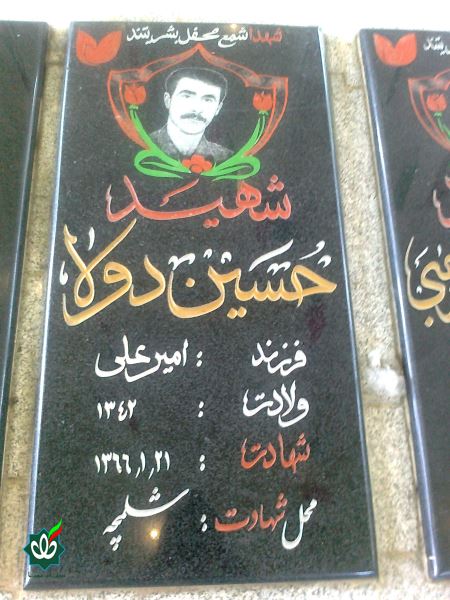 شهدا شمع محفل بشریتند
شهید
حسین دولا
فرزند : امیرعلی
ولادت : ۱۳۴۲
شهادت : ۱۳۶۶٫۱٫۲۱
محل شهادت : شلمچه